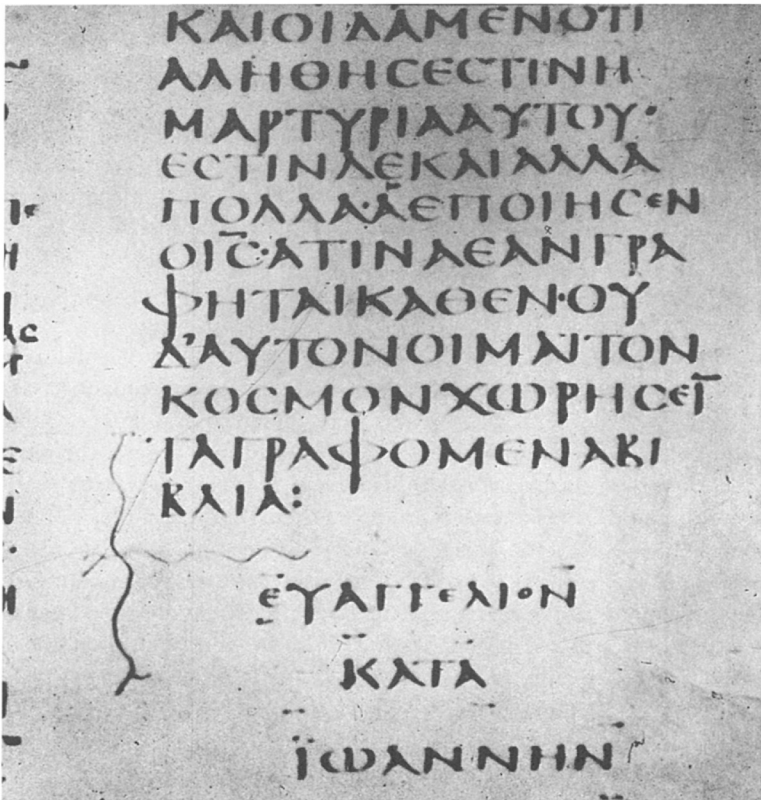 ΚΑΙΟΙΔΑΜΕΝΟΤΙ
ΑΛΗΘΗϹΕϹΤΙΝΗ
ΜΑΡΤΥΡΙΑΑΥΤΟΥ·
ΕϹΤΙΝΔΕΚΑΙΑΛΛΑ
ΠΟΛΛΑ·ΑΕΠΟΙΗϹΕΝ
ΟΙ̅Ϲ̅·ΑΤΙΝΑΕΑΝΓΡΑ
ΦΗΤΑΙΚΑΘΕΝ·ΟΥ
Δ’ΑΥΤΟΝΟΙΜΑΙΤΟΝ
ΚΟϹΜΟΝΧΩΡΗϹΕΙ̅
ΤΑΓΡΑΦΟΜΕΝΑΒΙ
ΒΛΙΑ:
ΕΥΑΓΓΕΛΙΟΝ
ΚΑΤΑ
ΪΩΑΝΝΗΝ